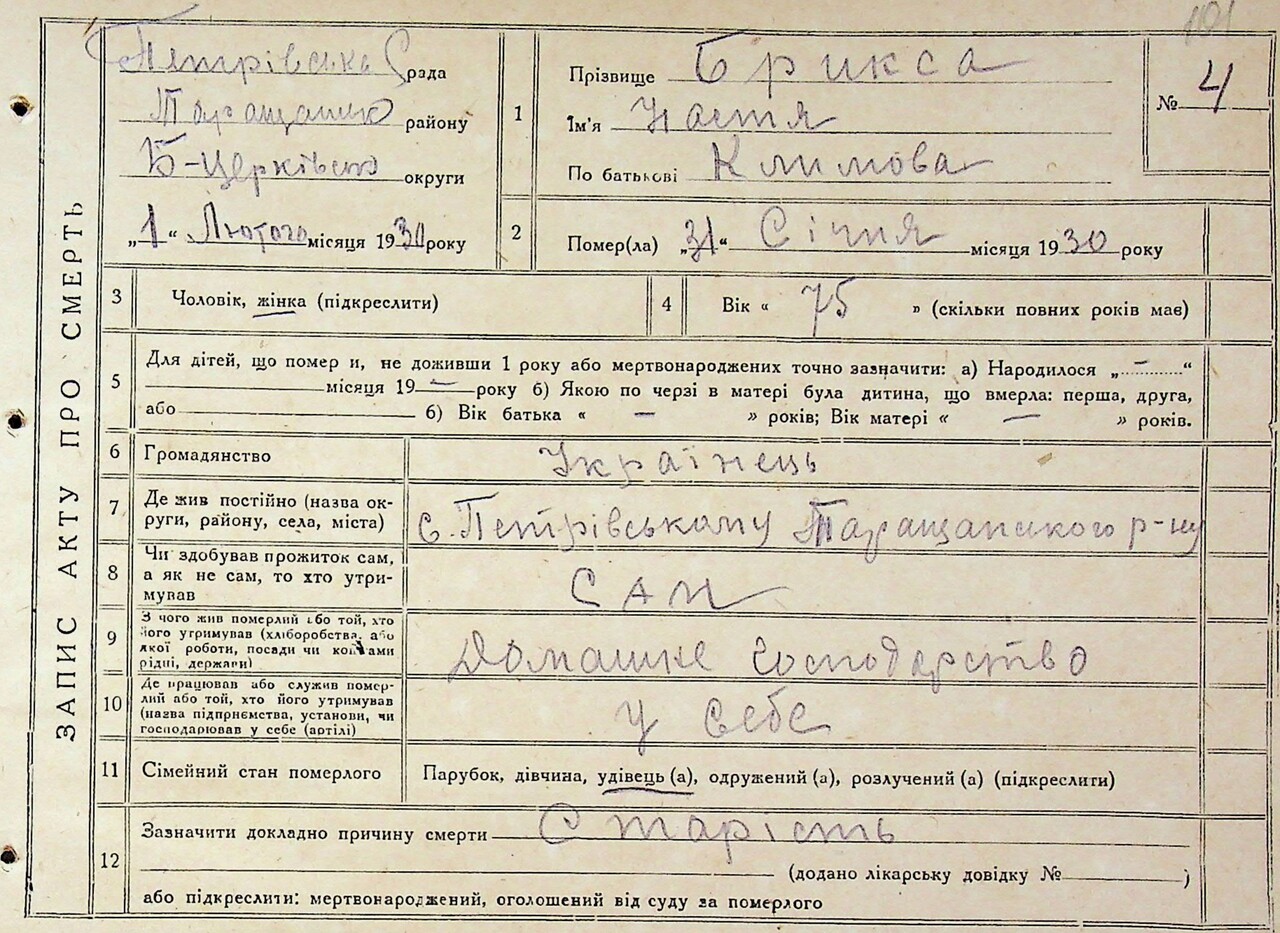 101
ЗАПИС АКТУ ПРО СМЕРТЬ
Петрівська С рада
Таращанько району
Б-Церківсько округи
„1“ Лютого місяця 1930 року
1
Прізвище Брикса
Ім'я Настя
По батькові Климова
№ 4
2 Помер(ла) „31“ Січня місяця 1930 року
3 Чоловік, жінка (підкреслити)
4 Вік « 75 » (скільки повних років має)
5 Для дітей, що помер и, не доживши 1 року або мертвонароджених точно зазначити: а) Народилося „—“
місяця 19 — року б) Якою по черзі в матері була дитина, що вмерла: перша, друга,
або б) Вік батька « — » років; Вік матері « — » років.
6 Громадянство Українець
7 Де жив постійно (назва ок-
руги, району, села, міста) с. Петрівському Таращанского р-ну
8 Чи здобував прожиток сам,
а як не сам, то хто утри-
мував САМ
9 З чого жив померлий або той, хто
його утримував (хліборобства, або
якої роботи, посади чи коштами
рідні, держави) Домашнє господарство
10 Де працював або служив помер-
лий або той, хто його утримував
(назва підприємства, установи, чи
господарював у себе (артілі) у себе
11 Сімейний стан померлого Парубок, дівчина, удівець (а), одружений (а), розлучений (а) (підкреслити)
12 Зазначити докладно причину смерти Старість
(додано лікарську довідку № )
або підкреслити: мертвонароджений, оголошений від суду за померлого